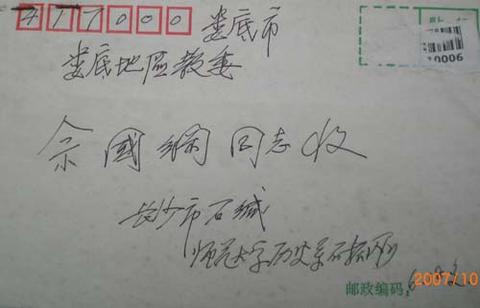 417000 娄底市
娄底地区教委
余國綱同志收
长沙市石城
师范大学历史系石
邮政编码:
2007/10
0006